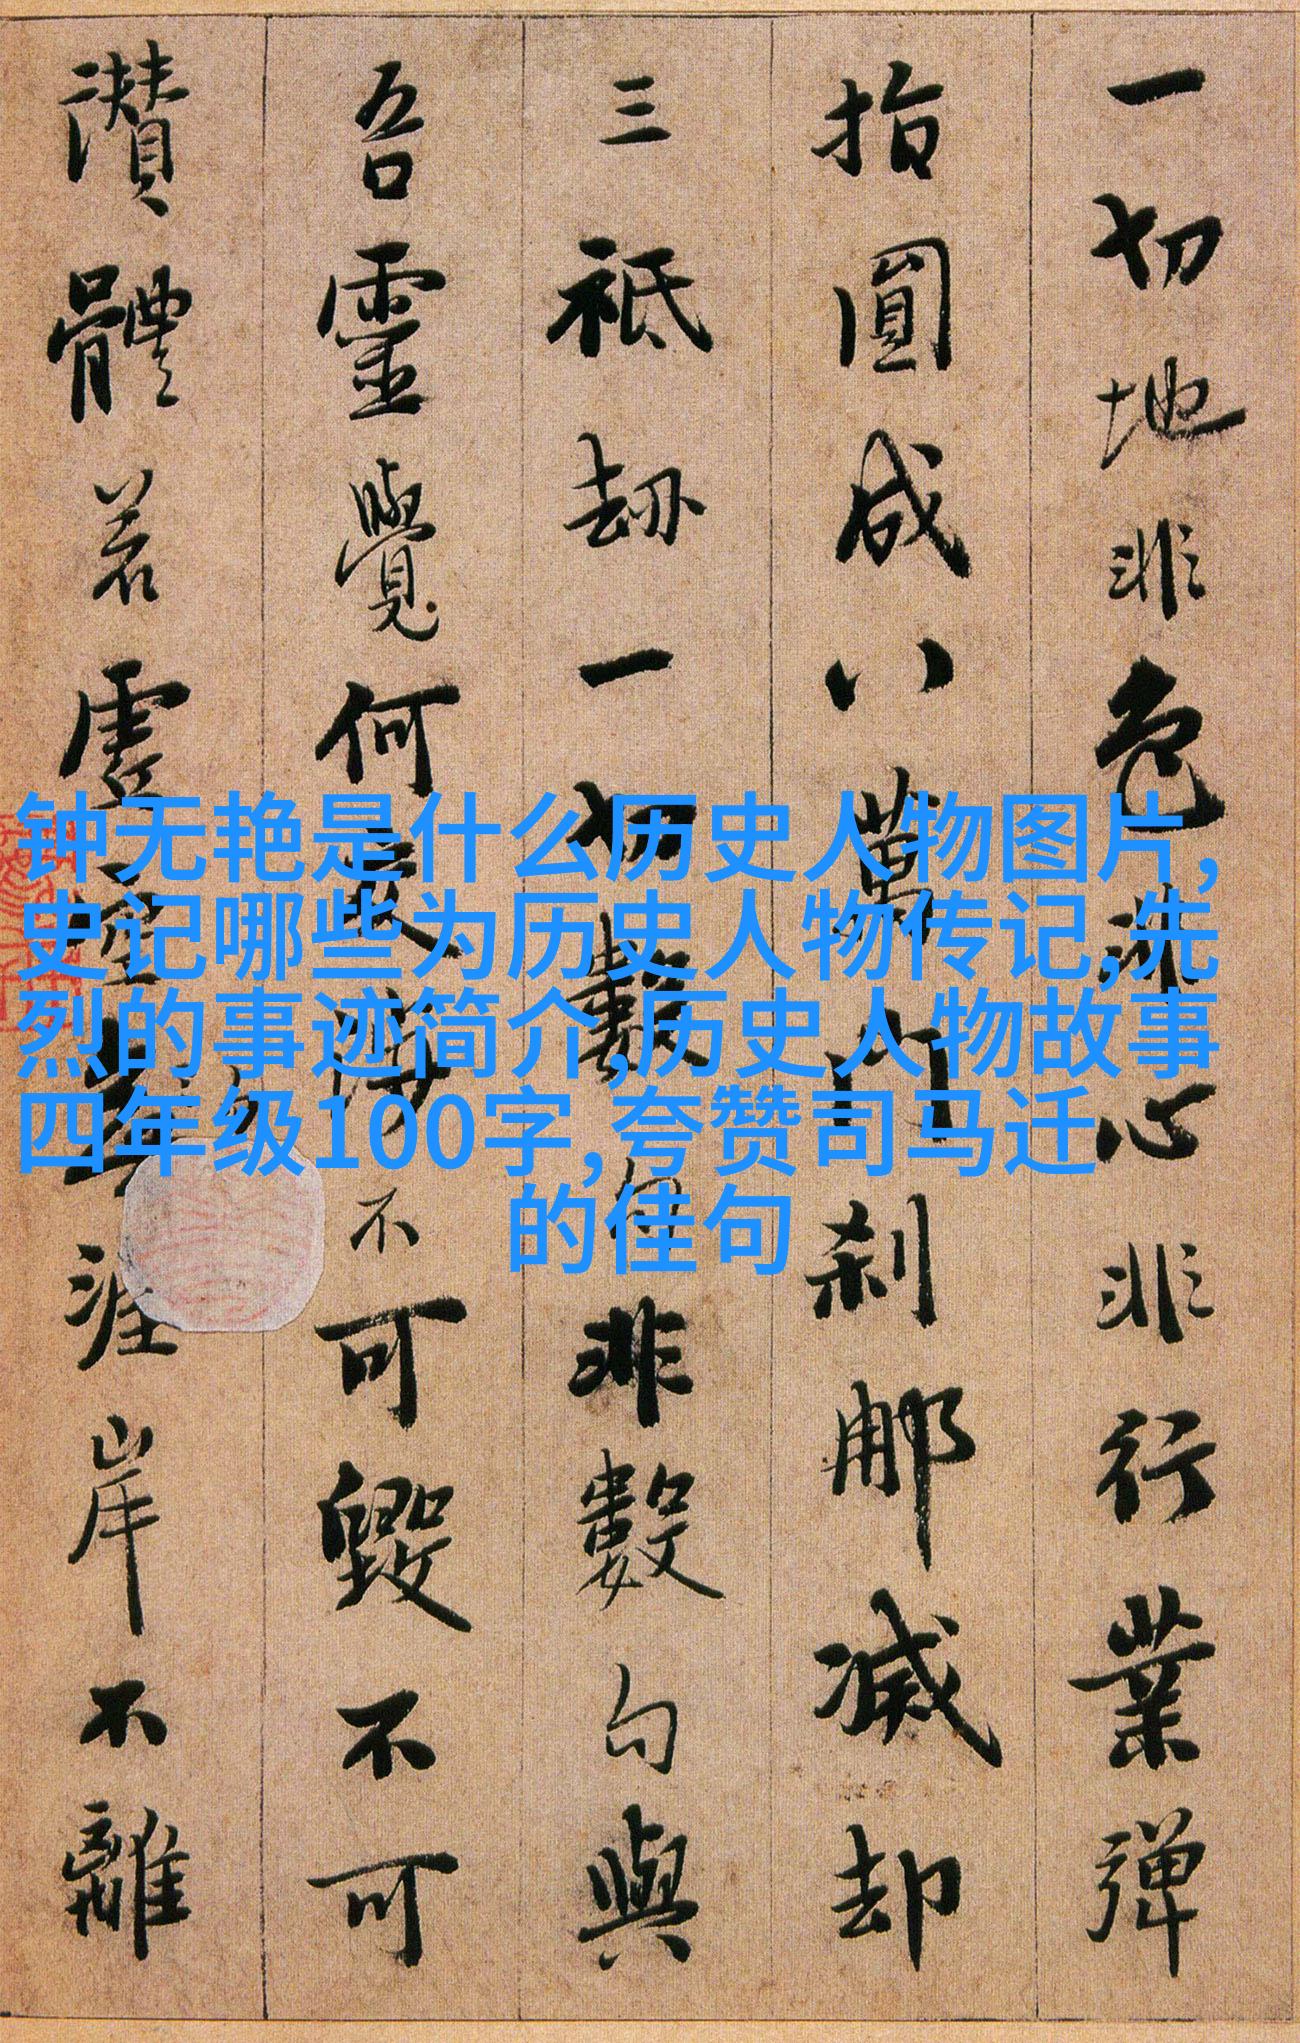 一切地非色非心非行業彈
指圓成八萬門刹那滅却
三祇劫一切數句非數句與
吾靈覺何交涉不可毀不可
讚體若虛空無涯岸不離
钟无艳是什么历史人物图片,
史记哪些为历史人物传记,先
烈的事迹简介,历史人物故事
四年级100字,夸赞司马迁
的佳句